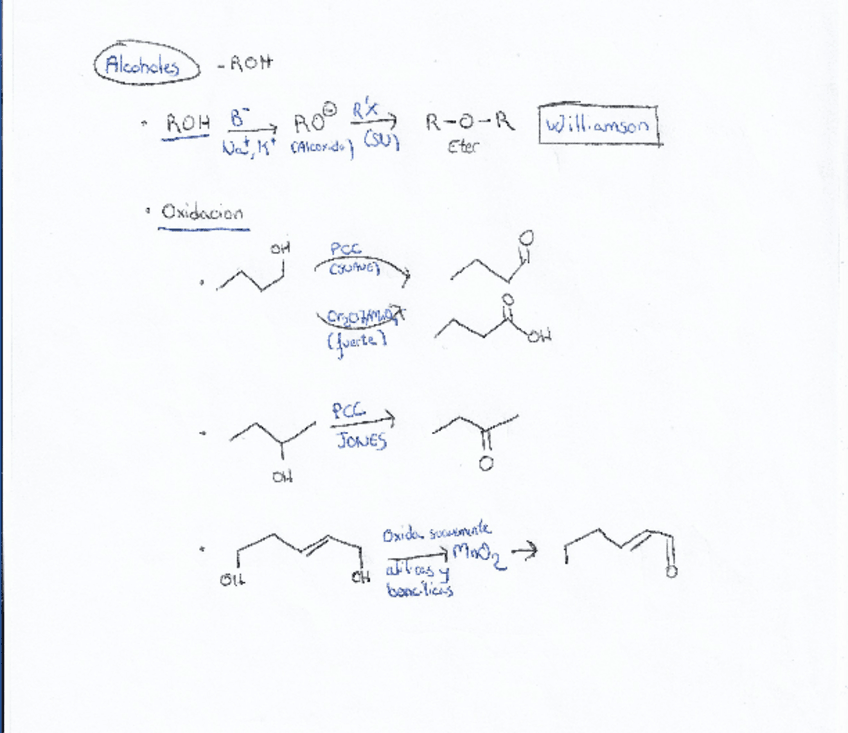 Alcoholes -ROH
• ROH B⁻ Na⁺, K⁺ RO⊖ (Alcoxido) R'X (SN) R-O-R Eter Williamson
• Oxidacion
OH PCC (SUAVE) O
(fuerte) O OH
PCC JONES
OH O
Oxida suavemente
OH OH alilicas y bencilicas MnO₂ → O